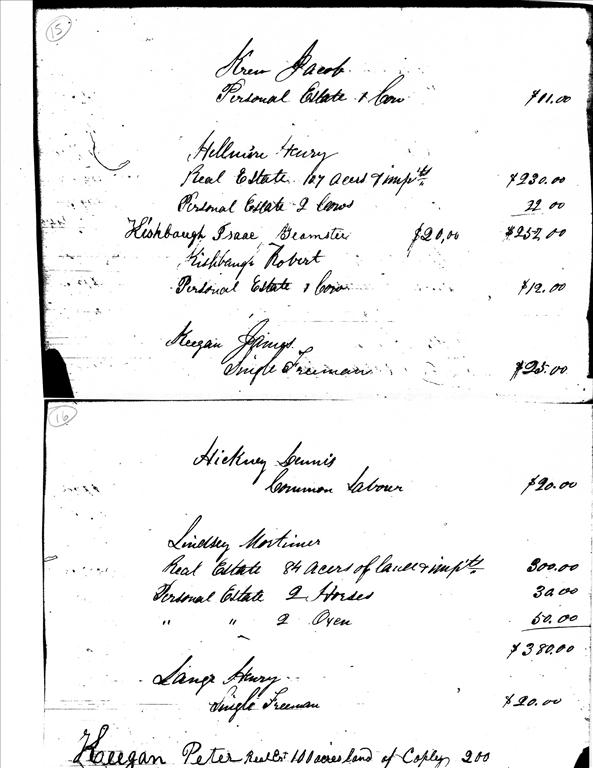 15
Krew Jacob
Personal Estate 1 Cow $11.00
Henry
Real Estate 107 acers & imp'ts $230.00
Personal Estate 2 Cows 22 00
Kishbaugh Isaac Teamster $20,00 $252,00
Kishbaugh Robert
Personal Estate 1 Cow $12.00
Keegan James
Single Freeman $25.00
16
Hickney Dennis
Common Labour $20.00
Lindsey Mortimer
Real Estate 84 acers of land & imp'ts 300.00
Personal Estate 2 Horses 30.00
" " 2 Oxen 50.00
$380.00
Henry
Single Freeman $20.00
Keegan Peter Real Est 100 acres land of Copley 200